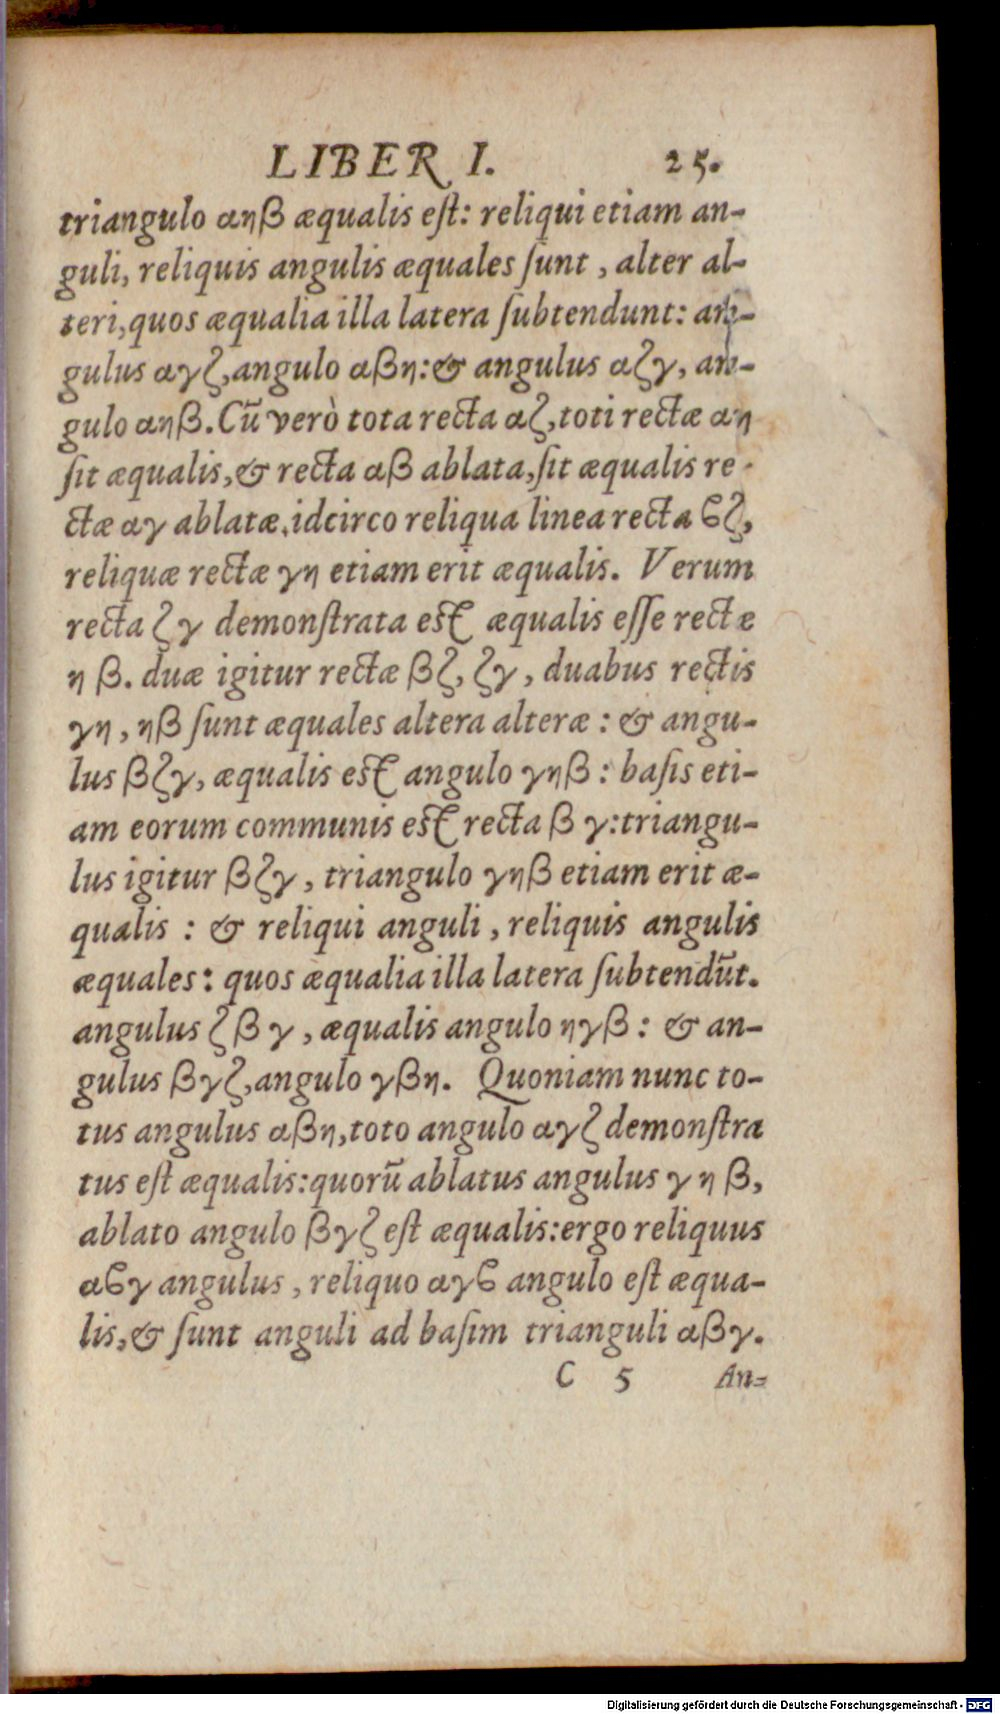 LIBER I. 25.
triangulo αηβ æqualis eſt: reliqui etiam an-
guli, reliquis angulis æquales ſunt, alter al-
teri, quos æqualia illa latera ſubtendunt: an-
gulus αγζ, angulo αβη: & angulus αζγ, an-
gulo αηβ. Cũ verò tota recta αζ, toti rectæ αη
ſit æqualis, & recta αβ ablata, ſit æqualis re-
ctæ αγ ablatæ, idcirco reliqua linea recta ϐζ,
reliquæ rectæ γη etiam erit æqualis. Verum
recta ζγ demonſtrata est æqualis eſſe rectæ
ηβ. duæ igitur rectæ βζ, ζγ, duabus rectis
γη, ηβ ſunt æquales altera alteræ: & angu-
lus βζγ, æqualis est angulo γηβ: baſis eti-
am eorum communis est recta βγ: triangu-
lus igitur βζγ, triangulo γηβ etiam erit æ-
qualis: & reliqui anguli, reliquis angulis
æquales: quos æqualia illa latera ſubtendũt.
angulus ζβγ, æqualis angulo ηγβ: & an-
gulus βγζ, angulo γβη. Quoniam nunc to-
tus angulus αβη, toto angulo αγζ demonſtra
tus eſt æqualis: quorũ ablatus angulus γηβ,
ablato angulo βγζ eſt æqualis: ergo reliquus
αϐγ angulus, reliquo αγϐ angulo eſt æqua-
lis, & ſunt anguli ad baſim trianguli αβγ.
C 5 An-
Digitalisierung gefördert durch die Deutsche Forschungsgemeinschaft - DFG